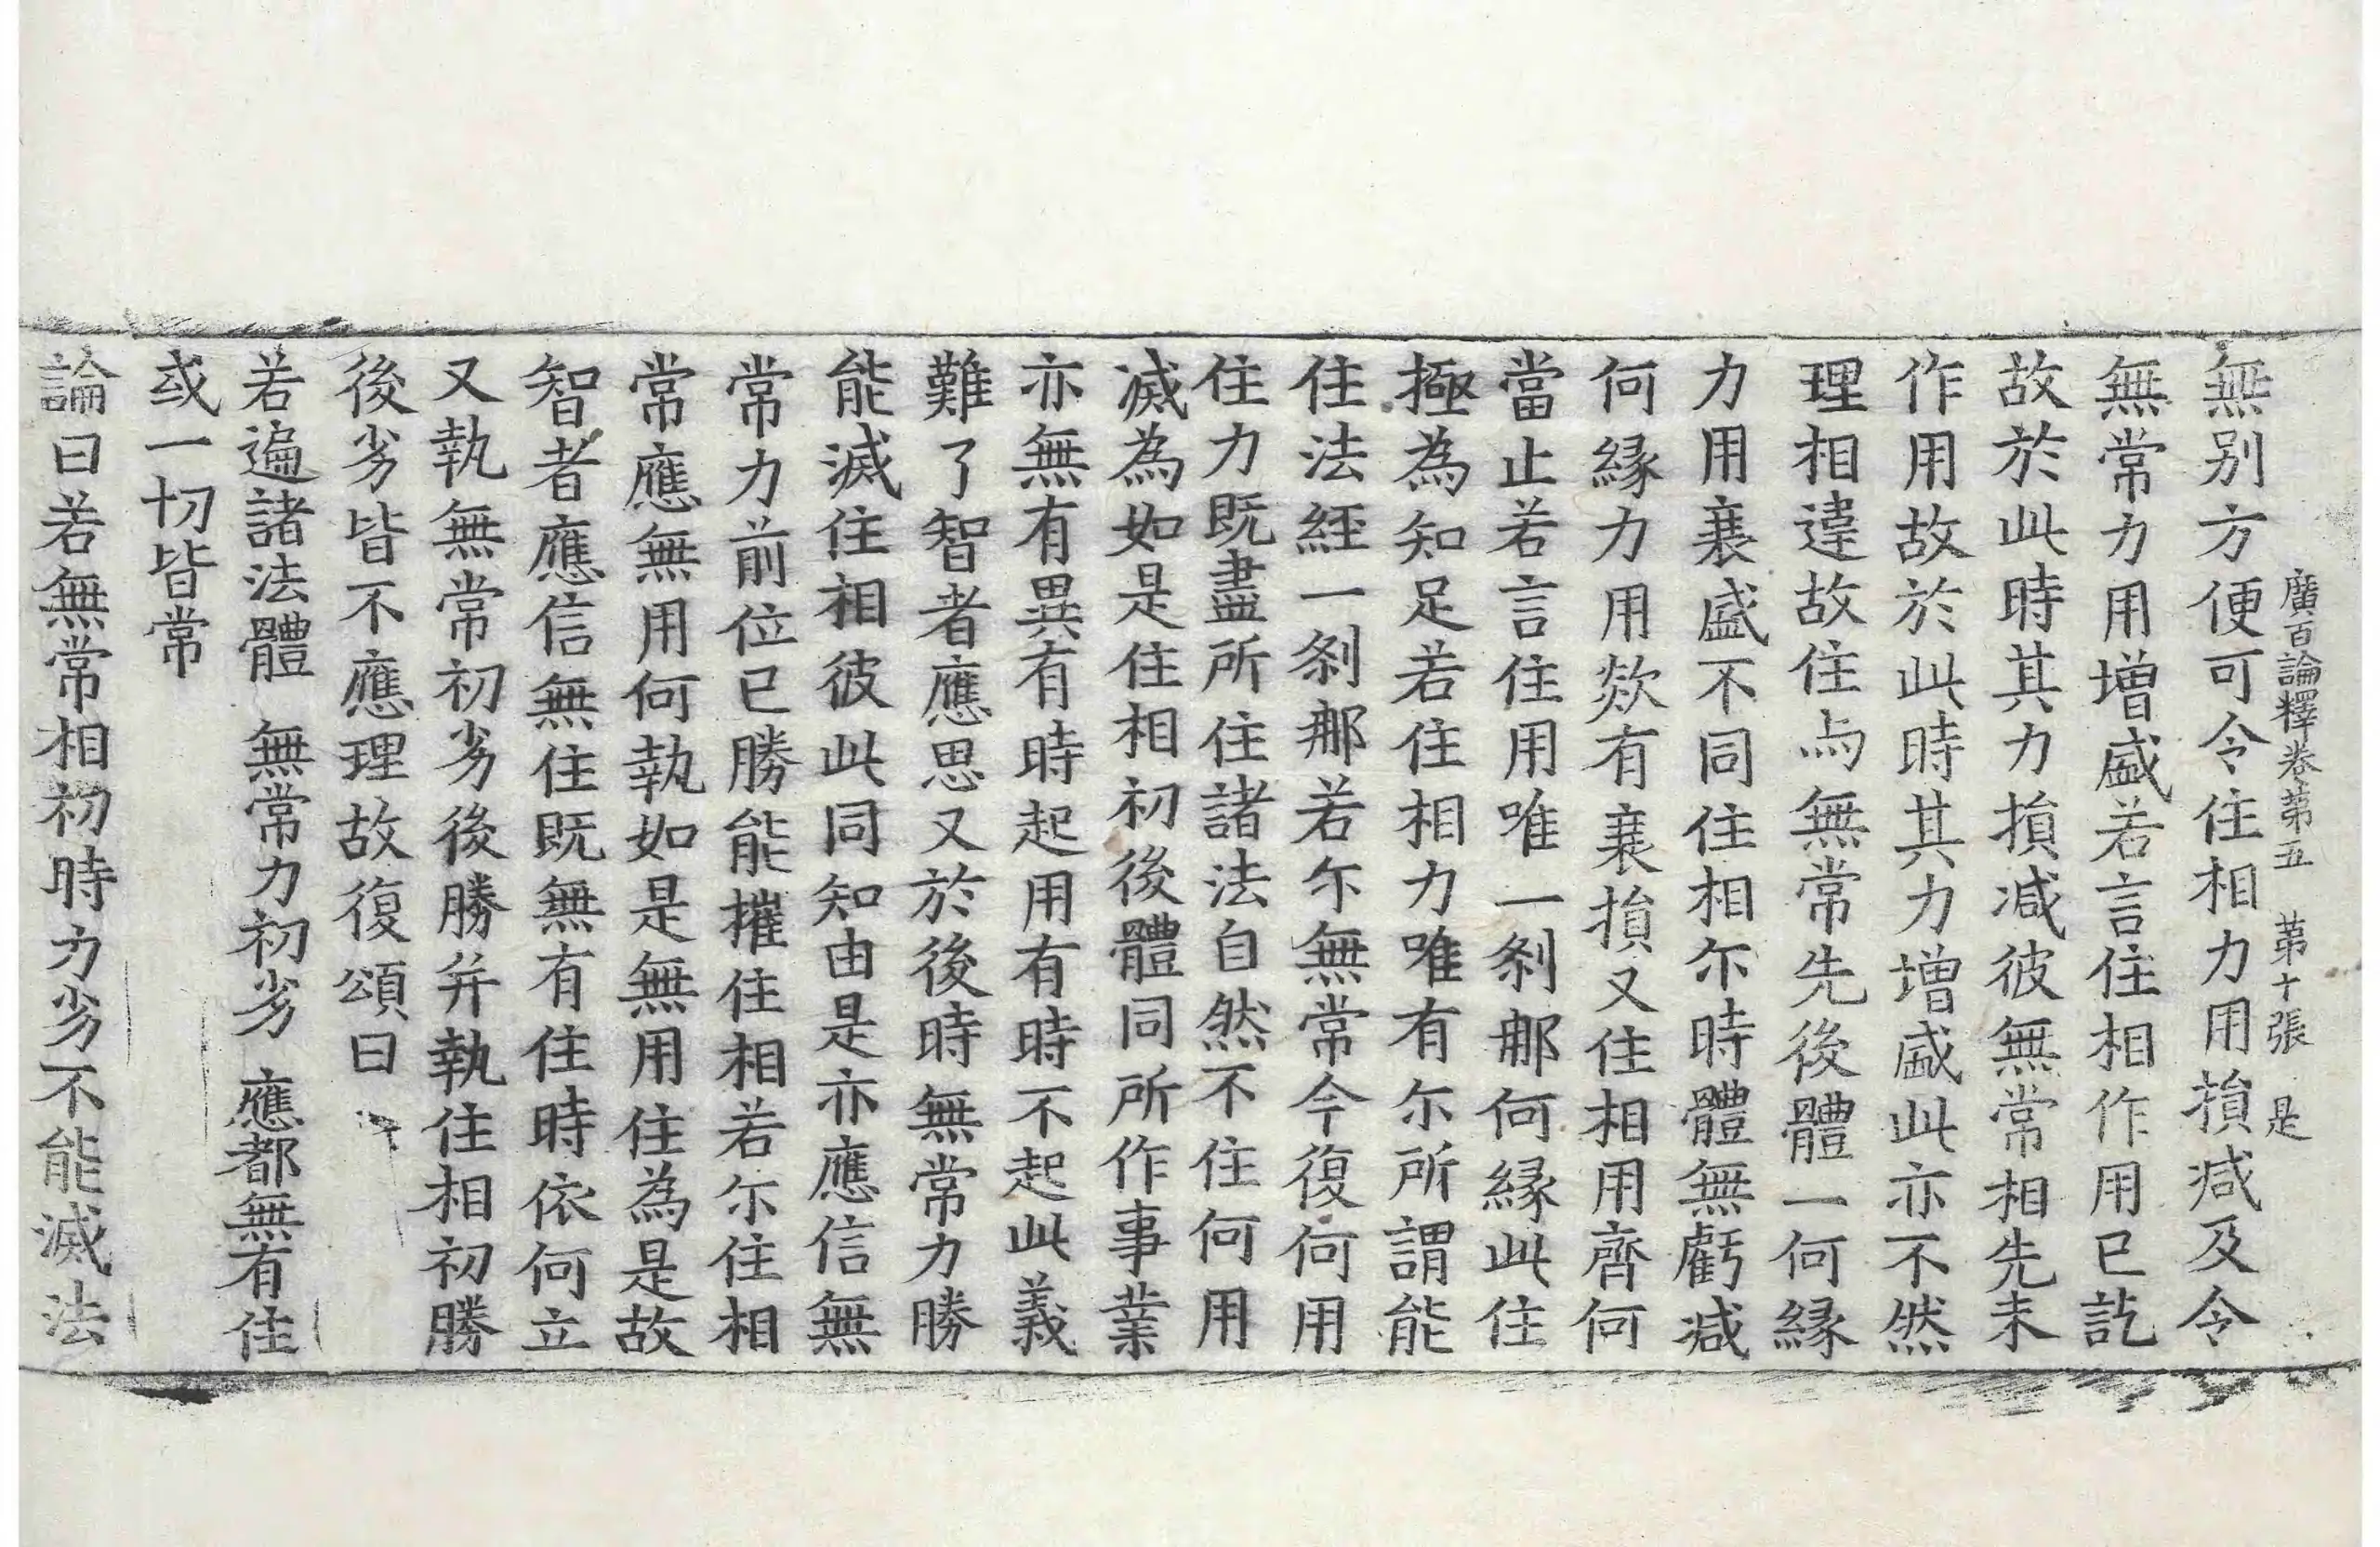 廣百論釋卷第五　第十張　是
無別方便可令住相力用損減及令
無常力用增盛若言住相作用已訖
故於此時其力損減彼無常相先未
作用故於此時其力增盛此亦不然
理相違故住与無常先後體一何緣
力用衰盛不同住相尒時體無虧減
何緣力用欻有衰損又住相用齊何
當止若言住用唯一剎那何緣此住
極為知足若住相力唯有尒所謂能
住法經一剎那若尒無常今復何用
住力既盡所住諸法自然不住何用
滅為如是住相初後體同所作事業
亦無有異有時起用有時不起此義
難了智者應思又於後時無常力勝
能滅住相彼此同知由是亦應信無
常力前位已勝能摧住相若尒住相
常應無用何執如是無用住為是故
智者應信無住既無有住時依何立
又執無常初劣後勝并執住相初勝
後劣皆不應理故復頌曰
若遍諸法體　無常力初劣　應都無有住
或一切皆常
論曰若無常相初時力劣不能滅法